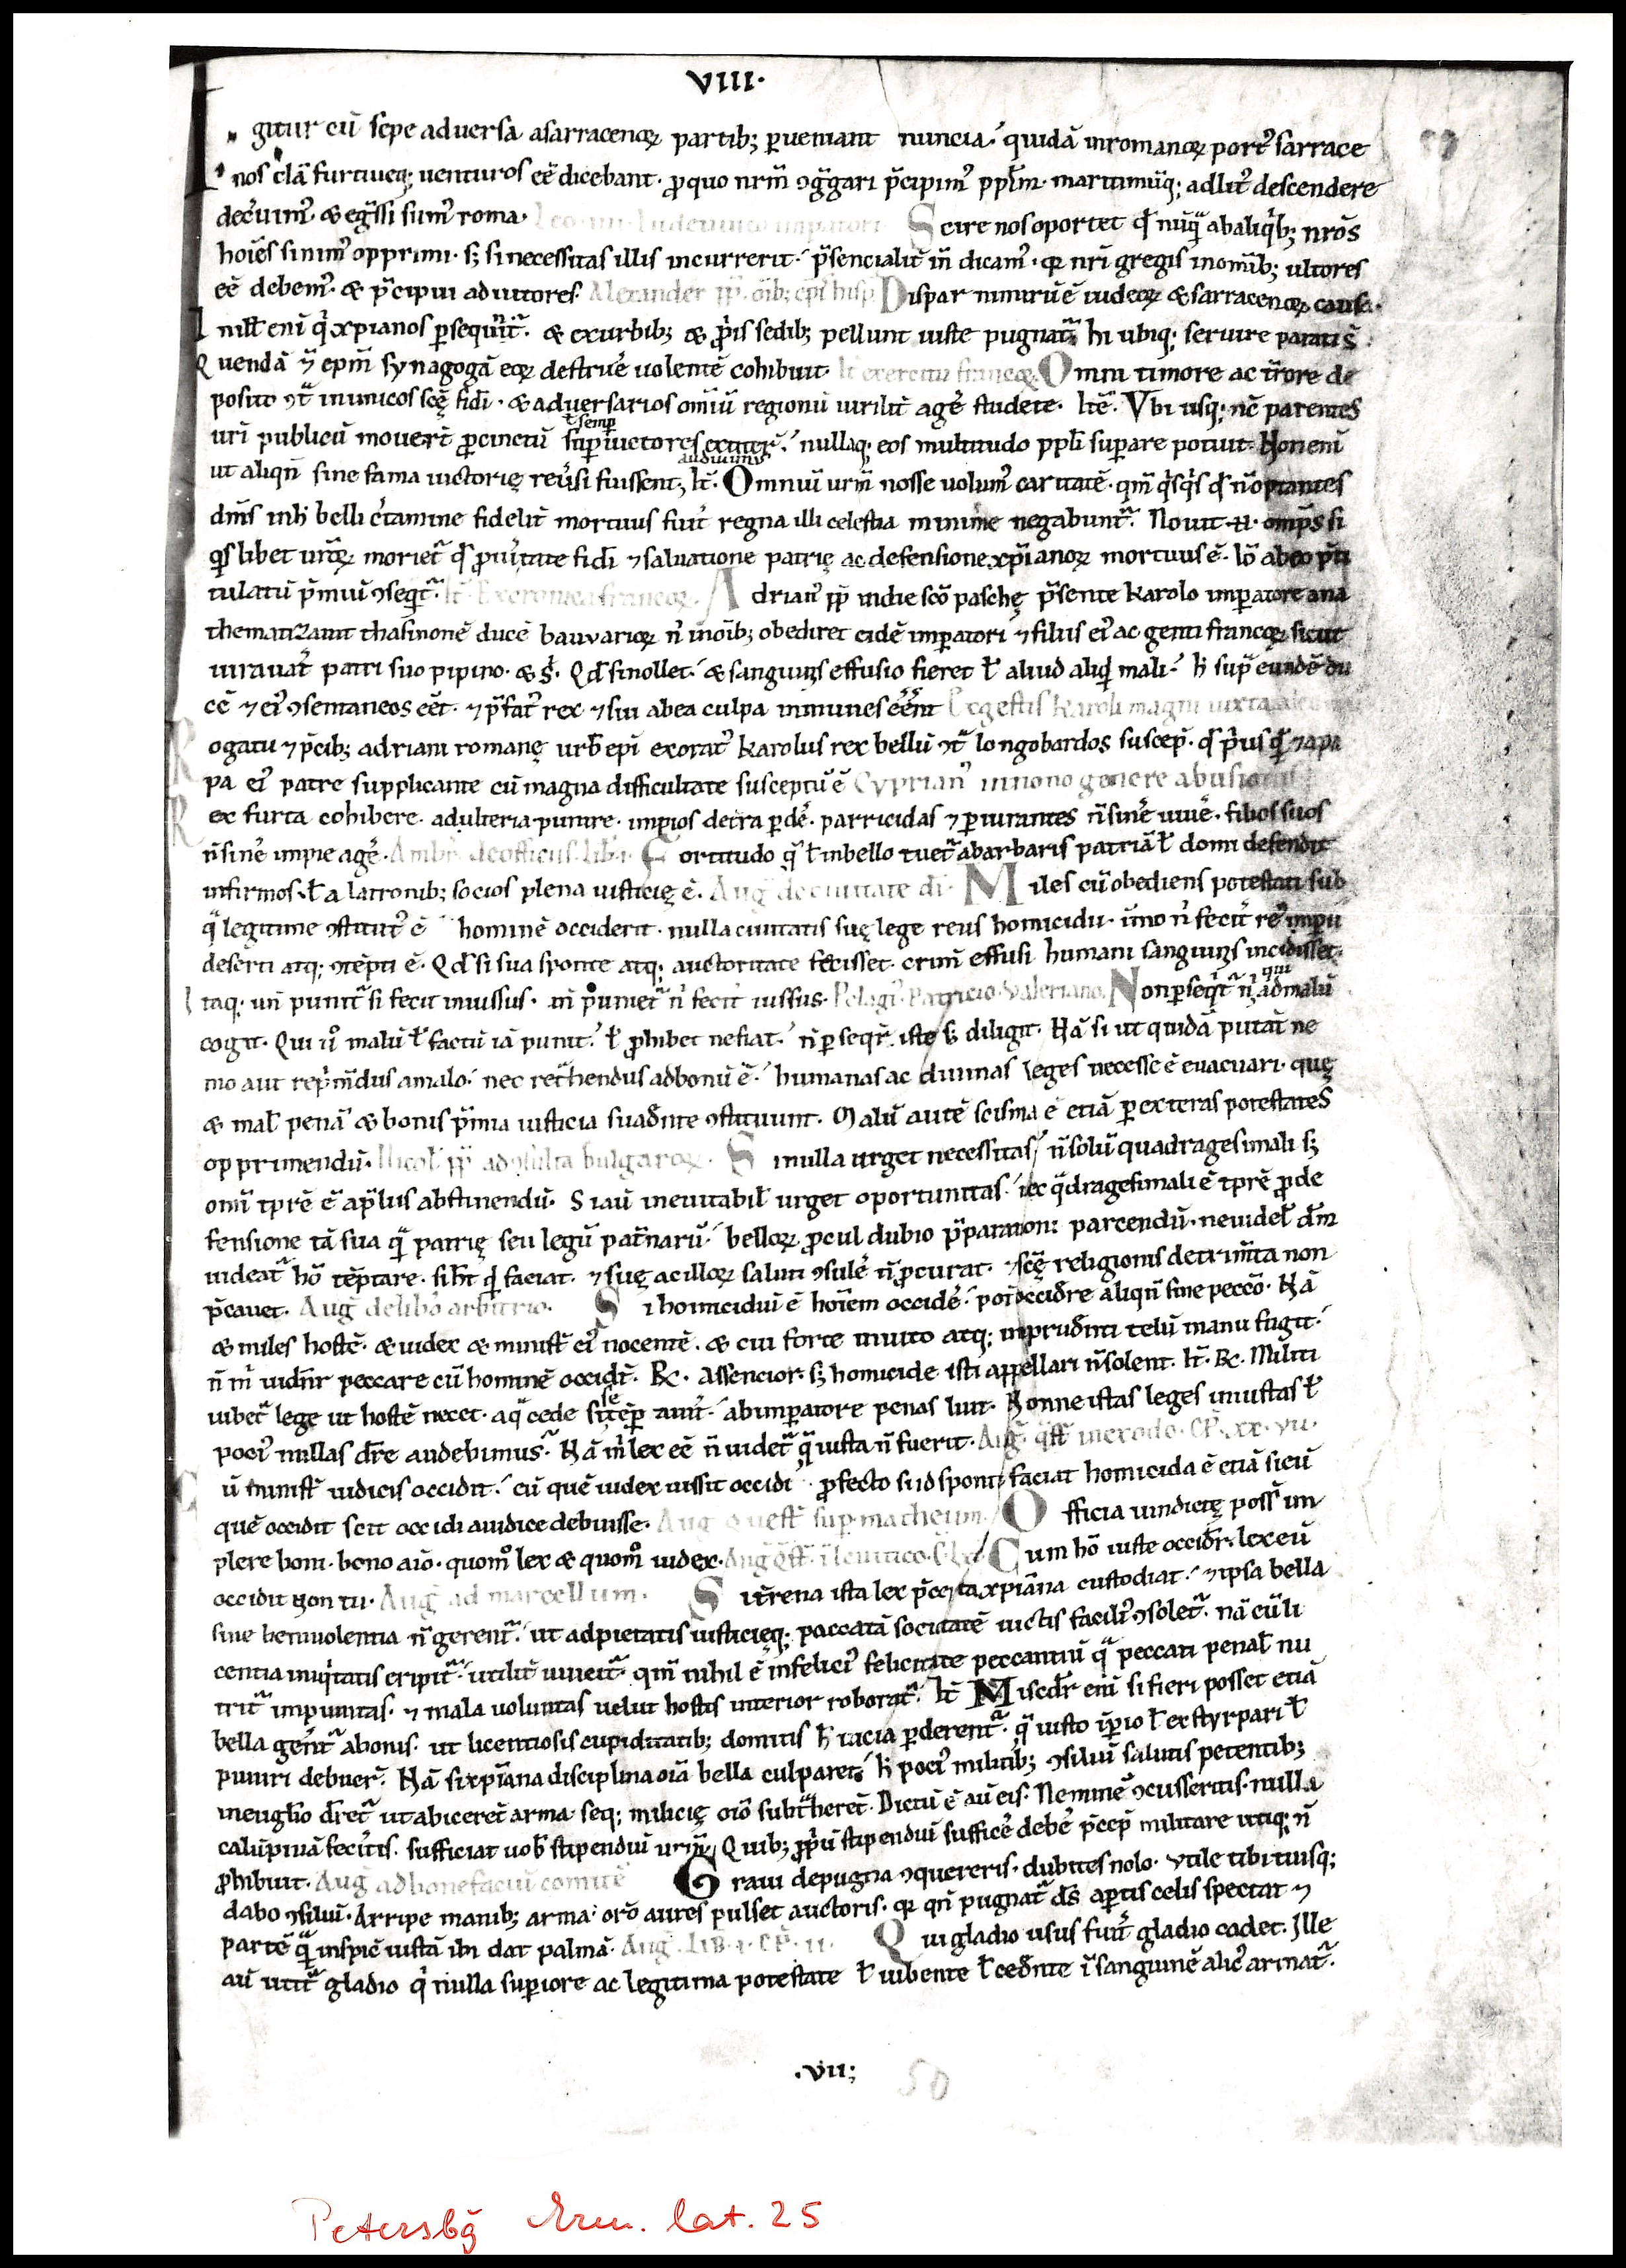 VIII·
gitur cū sepe aduersa asarracenoꝝ partib; ꝑueniant nuncia quidā inromanoꝝ port᷒ sarrace
nos clā furtiueq; uenturos eē dicebant · ꝓquo nrm̄ ꝯg̃gari p̄cipim᷒ ppl̄m · maritimūq; adlit᷒ descendere
decͥuim᷒ · & eg̃ssi sum᷒ roma · Leo · iiii · Ludeuuico imperatori Scire nos oportet qđ nūq̃ abaliqͥb; nros̄
hoīes sinim᷒ opprimi · s; si necessitas illis incurrerit p̃sencialit̄ · ꝙ nrī gregis inomīb; ultores
eē debem᷒ · & p̃cipui adiutores · Alexander pp̄ · oīb; ep̄i hisp · Dispar nimirū ē iudeoꝝ & sarracenoꝝ causa ·
enī qͥ xp̄ianos ꝑsequn̄t̃ · & exurbib; & ꝓp̄is sedib; pellunt iuste pugnat̃ hi ubiq; seruire parati s̄
Quendā ep̄m synagogā eoꝝ destruē uolentē cohibuit · It exercitui francoꝝ · Omni timore ac t̄rore de
posito inimicos scę̄ fidī · & aduersarios omīū regionū uirilit̄ agē studete · Itē · Vbi usq; nc̄ parentes
urī publicū mouer̄t ꝓcinctū semꝑ uictores nullaq; eos multitudo ppl̄i suꝑare potuit · Non enī
audiuimus
ut aliqn̄ sine fama uictorię reūsi fuissent; It̄ · Omniū urm̄ nosse uolum᷒ caritatē · qm̄ qͥsqͥs
belli cͥtamine fidelit̄ mortuus fiut̄ regna illi celestia minime negabunt̃ · Nouit omp̄s si
libet moriet̃ qđ ꝓuͥtate fidī ⁊ saluatione patrię ac defensione xp̄ianoꝝ mortuus ē · Iō abeo
tulatū p̄miū ꝯseqͥt̃ · It̄ · Ex cronica francoꝝ · Adrian᷒ pp̄ indie scō paschę p̃sente karolo imꝑatore ana
thematizauit thassinonē ducē bauuarioꝝ n̄ inoīb; obediret eidē imꝑatori ⁊ filiis ei᷒ ac genti francoꝝ sicut
iurauat̄ patri suo pipino · & s̄ · Qđ sinollet & sanguinis effusio fieret ł aliud aliqđ mali h̄ sup̃ eundē du
cē ⁊ ei᷒ ꝯsentaneos eēt · ⁊ p̃fat᷒ rex ⁊ sui abea culpa inmunes eēnt Ex gestis karoli magni iuxta
Rogatu ⁊ p̄cib; adriani romanę urb̄ epī exorat᷒ karolus rex bellū longobardos suscep̄ · qđ p̄us
pa ei᷒ patre supplicante cū magna difficultate susceptū ē Cyprian᷒ innono genere abusionis
Rex furta cohibere · adulteria punire · impios detra ꝑdē · parricidas ⁊ ꝑiurantes n̄sinē uiuē · filios suos
n̄sinē impie agē · Ambr̄ · deofficiis · lib · i · Fortitudo q̄ ł inbello tuet̃ abarbaris patriā ł domi defendit
infirmos · ł a latronib; socios plena iusticię ē · Aug̃ de ciuitate dī · Miles cū obediens potestati sub
q̃ legitime ꝯstitut᷒ ē hominē occiderit · nulla ciuitatis suę lege reus homicidii · imo n̄ fecit̄ re᷒ impii
deserti atq; ꝯtēpti ē · Qđ si sua sponte atq; auctoritate fecisset · crimī effusi humani sanguinis incidisset ·
Itaq; uñ punit̃ si fecit iniussus · puniet̃ n̄ fecit̄ iussus · Pelagi᷒ Patricio Valeriano · Nonꝑseqͥt̃ n̄ qui admalū
cogit · Qui u͛ malū ł factū iā punit ł ꝓhibet nefiat n̄ ꝑseqr̄ iste s; diligit · Nā si ut quidā putāt ne
mo aut rep̄mdus amalo nec ret̄hendus adbonū ē humanas ac diuinas leges necesse ē euacuari · quę
& mal̄ penā & bonis p̃mia iusticia suadn̄te ꝯstituunt · Malū autē scisma ē etiā ꝑexteras potestates
opprimendū · Nicol̄ pp̄ ad ꝯsulta bulgaroꝝ · Si nulla urget necessitas n̄solū quadragesimali s;
omī tp̄re ē ap̄lius abstinendū · Siaū ineuitabil̄ urget oportunitas nec q̃dragesimali ē tp̄re ꝓde
fensione tā sua q̃ patrię seu legū pat̄narū belloꝝ ꝓcul dubio p̃parationi parcendū · neuidel̄ dm̄
uideat̃ hō tēptare · sih̄t qͥ faciat · ⁊ suę ac illoꝝ saluti ꝯsulē n̄ ꝓcurat · ⁊ scę̄ religionis detrim̄ta non
p̄cauet · Aug̃ delibō arbitrio · Si homicidiū ē hoīem occidē · aliqn̄ sine peccō · Nā
& miles hostē · & iudex & minist̄ ei᷒ nocentē · & cui forte inuito atq; imprudn̄ti telū manu fugit
n̄ m̄ uidn̄r peccare cū hominē occidt̄ · Rc̄ · Assencior · s; homicide isti appellari n̄solent · It̄ · Rc̄ · Militi
iubet̃ lege ut hostē necet · aq̃ cede abimꝑatore penas luit · Nonne istas leges iniustas ł
poci᷒ nullas dr̄e audebimus · Nā m̄ lex eē n̄ uidet̃ q̃ iusta n̄ fuerit · Aug̃ · q̄st̄ inexodo · cp̄ · xx · vii ·
Cū minist̄ iudicis occidit cū quē iudex iussit occidi ꝓfecto si id sponte faciat homicida ē etiā si eū
quē occidit scit occidi auidice debuisse · Aug quest̄ suꝑ matheum · Officia uindictę poss̄ im
plere boni · bono aīo · quom͛ lex & quom͛ iudex · Aug̃ q̄st̄ · ileuitico · Cum hō iuste occidr̄ · lex eū
occidit non tu · Aug̃ ad marcellum · Si t̄rena ista lex p̄cepta xp̄iana custodiat ⁊ ipsa bella
sine beniuolentia n̄ gerent̃ ut adpietatis iusticięq; paccatā societatē uictis facili᷒ ꝯsolet̃ · nā cū li
centia iniqͥtatis eripit̃ utilit̄ uincit̃ · qm̄ nihil ē infelici᷒ felicitate peccantiū q̃ peccati penal̄ nu
trit̃ impunitas · ⁊ mala uoluntas uelut hostis interior roborat̃ · It̄ Misedr̄ enī si fieri posset etiā
bella gert̃ abonis · ut licentiosis cupiditatib; domitis h̄ uicia ꝑderent̃ · q̃ iusto iꝑio ł exstyrpari ł
puniri debuer̄ · Nā sixp̄iana disciplina oīa bella culparet h̄ poci᷒ militib; ꝯsiliū salutis petentib;
ineuglīo dr̄et̃ ut abiceret arma · seq; milicię oīō subt̄heret · Dictū ē aū eis · Neminē ꝯcusseritis · nulli
calūpniā fecͥtis · sufficiat uob̄ stipendiū urm̄ · Quib; ꝓp̄ū stipendiū sufficē debē p̄cep̄ militare utiq; n̄
ꝓhibuit · Aug̃ adbonefaciū comitē Graui depugna ꝯquereris · dubites nolo · vtile tibi tuisq;
dabo ꝯsiliū · Arripe manib; arma orō aures pulset auctoris · ꝙ qn̄ pugnat̃ ds̄ aꝑtis celis spectat ⁊
partē q̃ inspicē iustā ibi dat palmā · Aug̃ · LIB · i · cp̄ · 11 · Qui gladio usus fuit̄ gladio cadet · Ille
aū utit̃ gladio qͥ nulla suꝑiore ac legitima potestate ł iubente ł cedn̄te ī sanguinē alic᷒ armat̃ ·
·VII;
50
Petersbg Erm. lat. 25